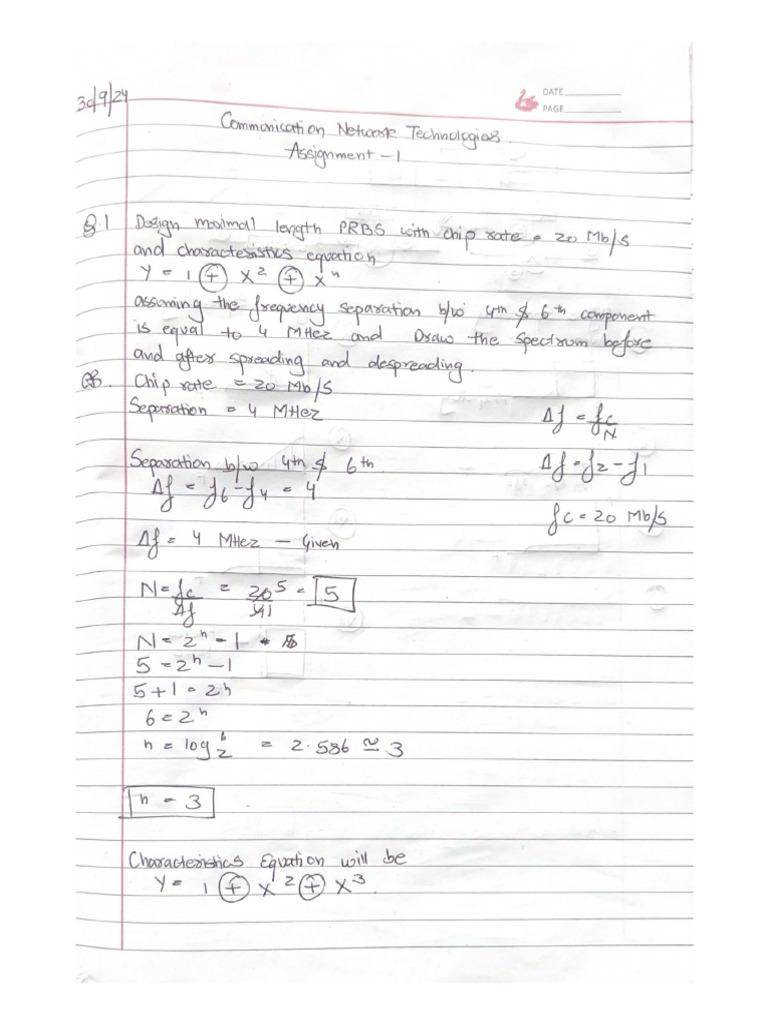 30/9/24
DATE
PAGE
Communication Network Technologies.
Assignment - 1
Q.1 Design maximal length PRBS with chip rate = 20 Mb/s
and characteristics equation
Y = 1 ⊕ X² ⊕ Xⁿ
assuming the frequency separation b/w 4th & 6th component
is equal to 4 MHez and Draw the spectrum before
and after spreading and despreading.
Chip rate = 20 Mb/s
Separation = 4 MHez
Δf = fc/N
Separation b/w 4th & 6th
Δf = f2 - f1
Δf = f6 - f4 = 4
fc = 20 Mb/s
Δf = 4 MHez — Given
N = fc/Δf = 20/4 5/1 = 5
N = 2ⁿ - 1
5 = 2ⁿ - 1
5 + 1 = 2ⁿ
6 = 2ⁿ
n = log 6 2 = 2.586 ≅ 3
n = 3
Characteristics Equation will be
Y = 1 ⊕ X² ⊕ X³